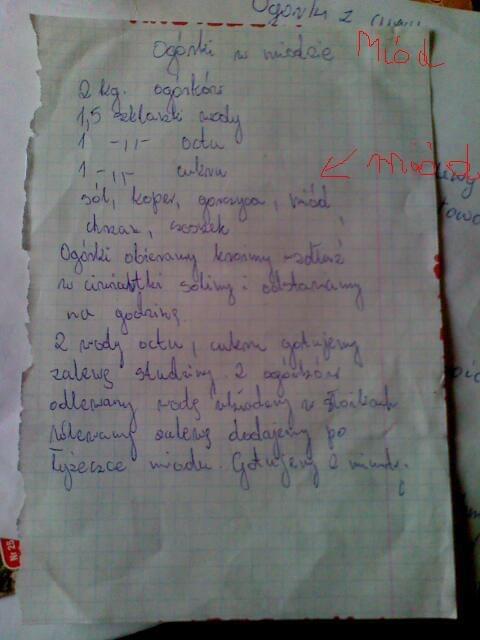 Ogórki z
Ogórki w miodzie Miód
2 kg. ogórków
1,5 szklanki wody
1 -,,- octu
1 -,,- cukru
miód
sól, koper, gorczyca, miód
chrzan, czosnek
Ogórki obieramy kroimy wzdłuż
w ćwiartki solimy i odstawiamy
na godzinę
Z wody octu, cukru gotujemy
zalewę studzimy. Z ogórków
odlewamy wodę układamy w słoikach
Wlewamy zalewę dodajemy po
łyżeczce miodu. Gotujemy 2
Nr 25